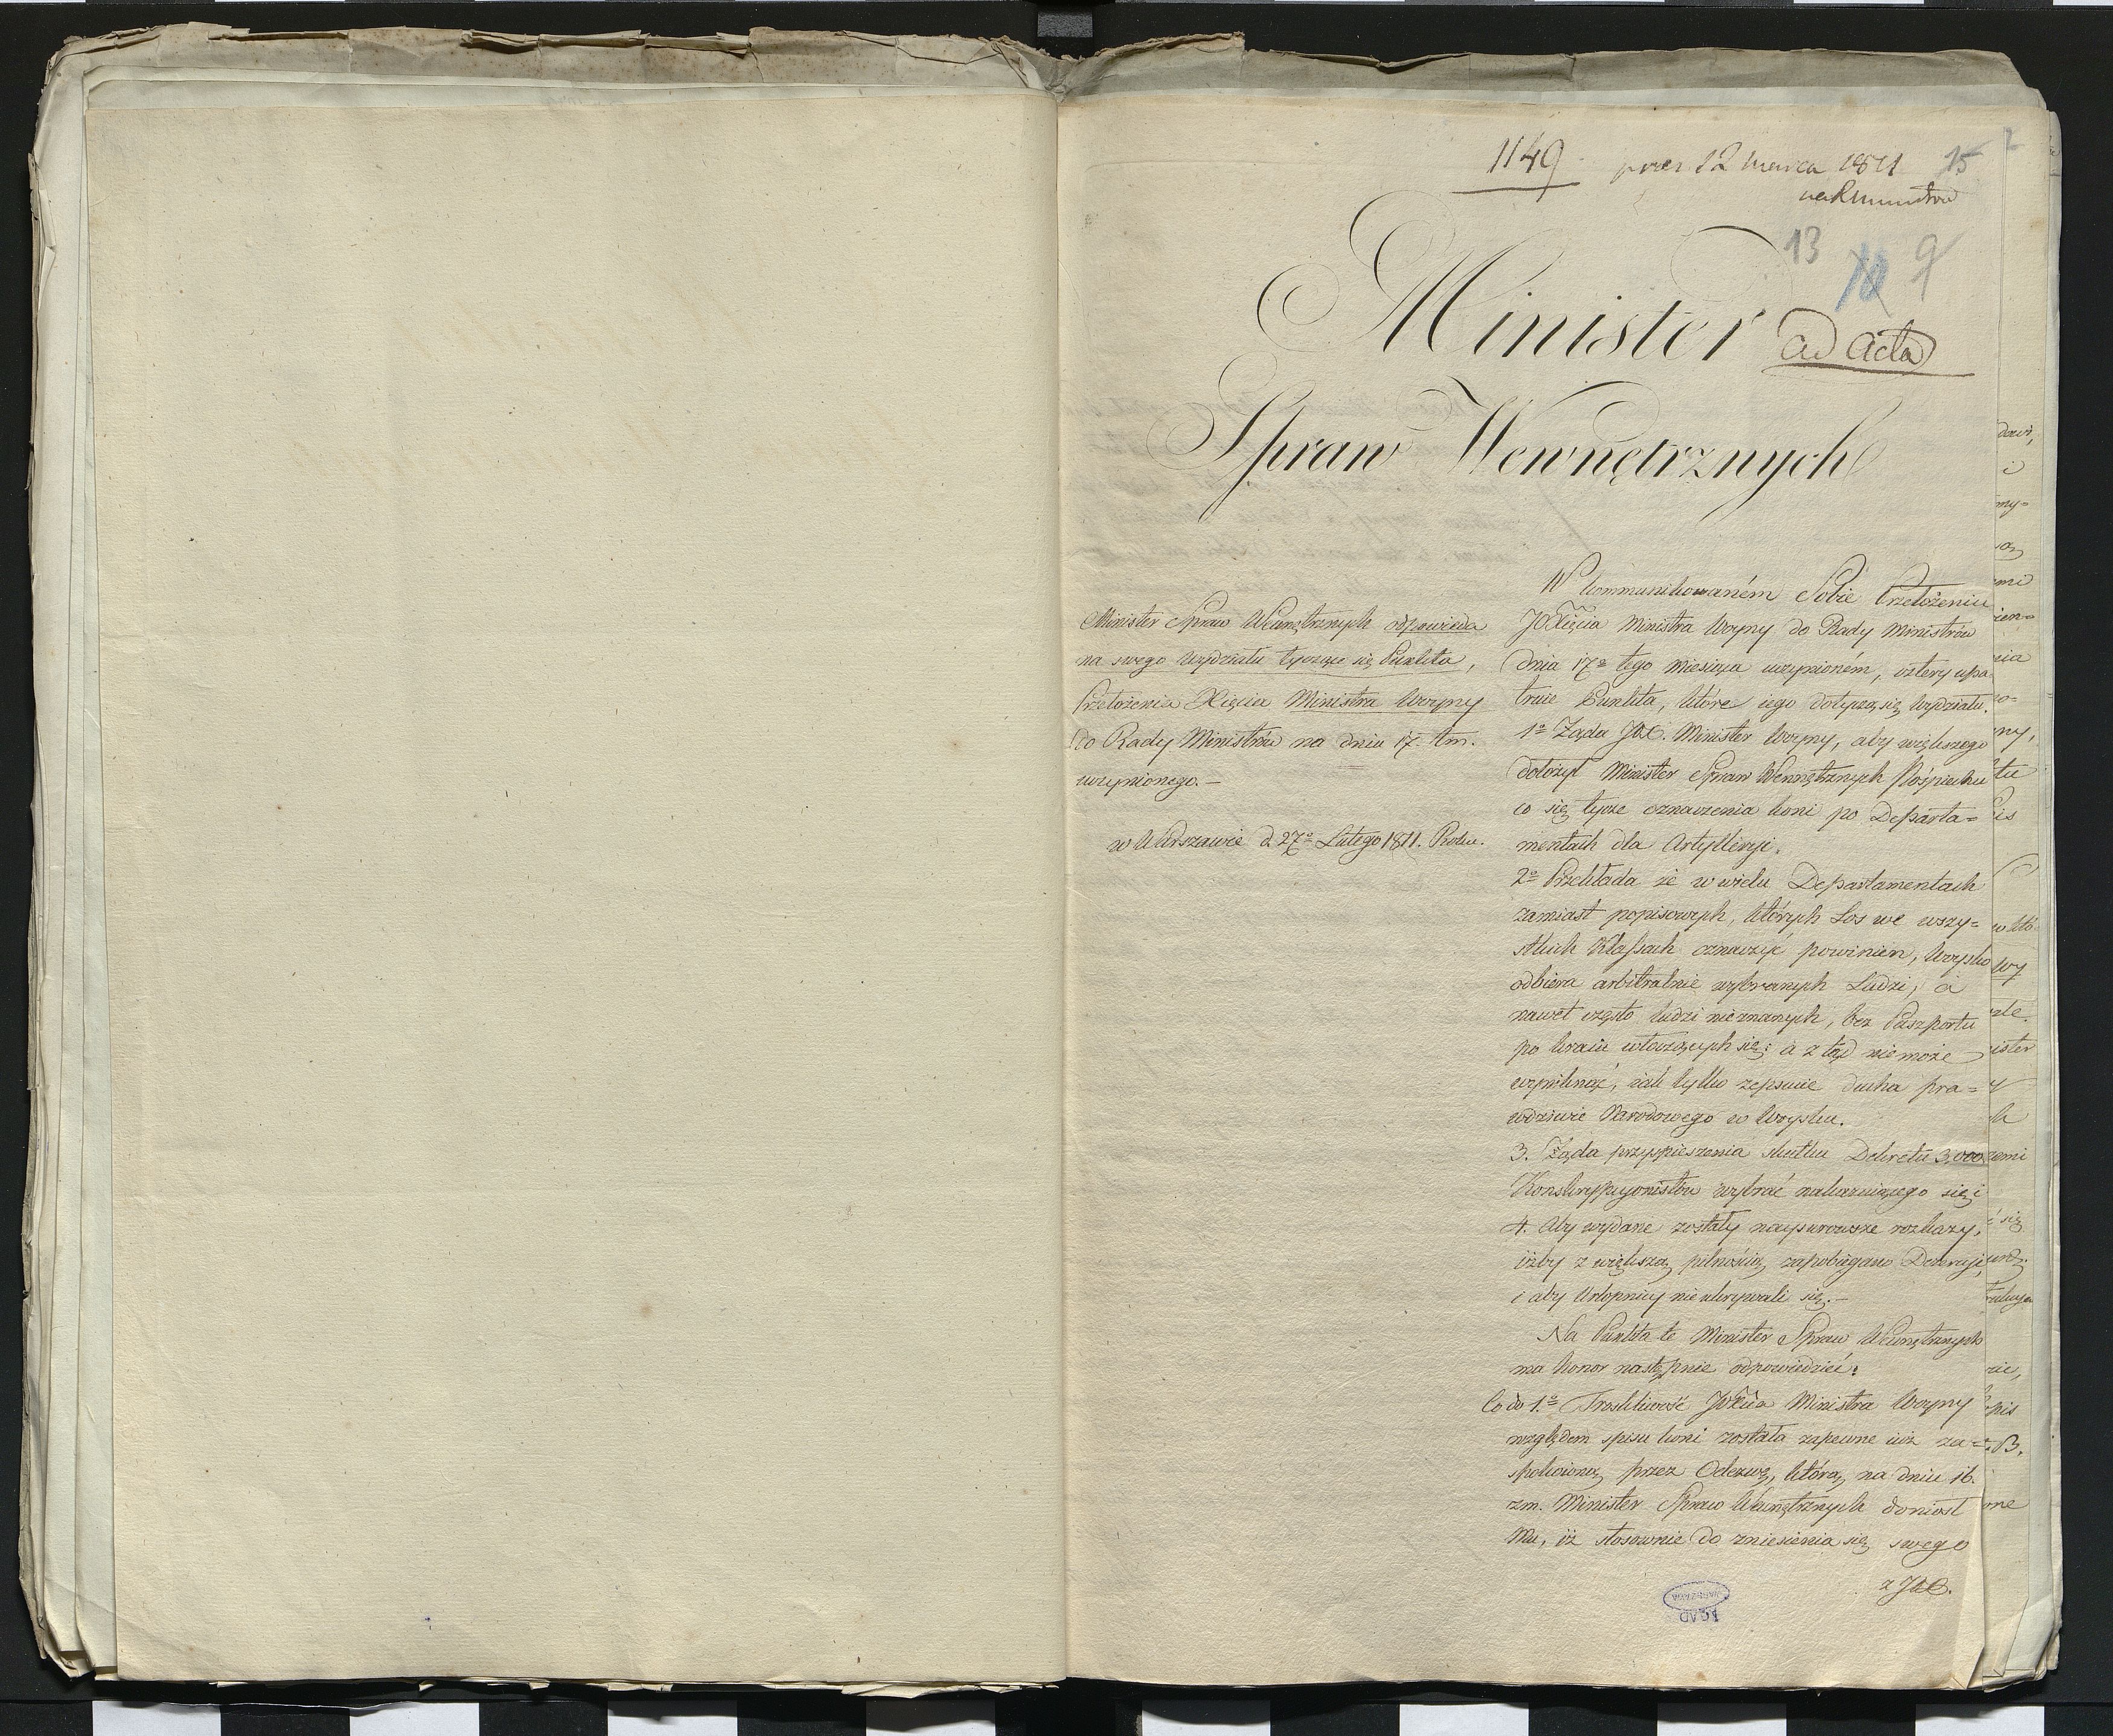 1149 12 Marca 1811 15
13 10 9
Minister ad Acta
Spraw Wewnętrznych
Minister Spraw Wewnętrznych odpowieda
na swego Wydziału tyczące się Punkta,
Przełożenia Xięcia Ministra Woyny
do Rady Ministrów na dniu 17. tm.
uczynionego.-
w Warszawie d 27º Lutego 1811. Roku.
W kommunikowaném Sobie Przełożeniu
JOXięcia Ministra Woyny do Rady Ministrów
dnia 17º tego Miesiąca uczynioném, cztery upa-
truie Punkta, które iego dotyczą się Wydziału.
1º Żąda JOX. Minister Woyny, aby większego
dołożył Minister Spraw Wewnętrznych Pośpiechu
co się tycze oznaczenia koni po Departa=
mentach dla Artylleryi.
2º Przekłada że w wielu Departamentach
zamiast popisowych, których Los we wszy=
stkich Klassach oznaczyć powinien, Woysko
odbiera arbitralnie wybranych Ludzi, a
nawet często ludzi nieznanych, bez Paszportu
po kraiu włoczących się; a z tąd nie może
wyniknąć, iak tylko zepsucie ducha pra=
wdziwie Narodowego w Woysku.
3. Żąda przyspieszenia skutku Dekretu 3,000
Konskrypcyonistów wybrać nakazuiącego się i
4. Aby wydane zostały naysurowsze rozkazy,
iżby z większą pilnością zapobiegano Dezercyi,
i aby Urlopnicy nie ukrywali się.-
Na Punkta te Minister Spraw Wewnętrznych
ma honor następnie odpowiedzieć:
Co do 1.º Troskliwość JOXcia Ministra Woyny
względem spisu koni została zapewne iuż za=
spokoioną przez Odezwę, którą na dniu 16.
zm. Minister Spraw Wewnętrznych doniosł
Mu, iż stosownie do zniesienia się swego
z JOX.
AGAD
WARSZAWA